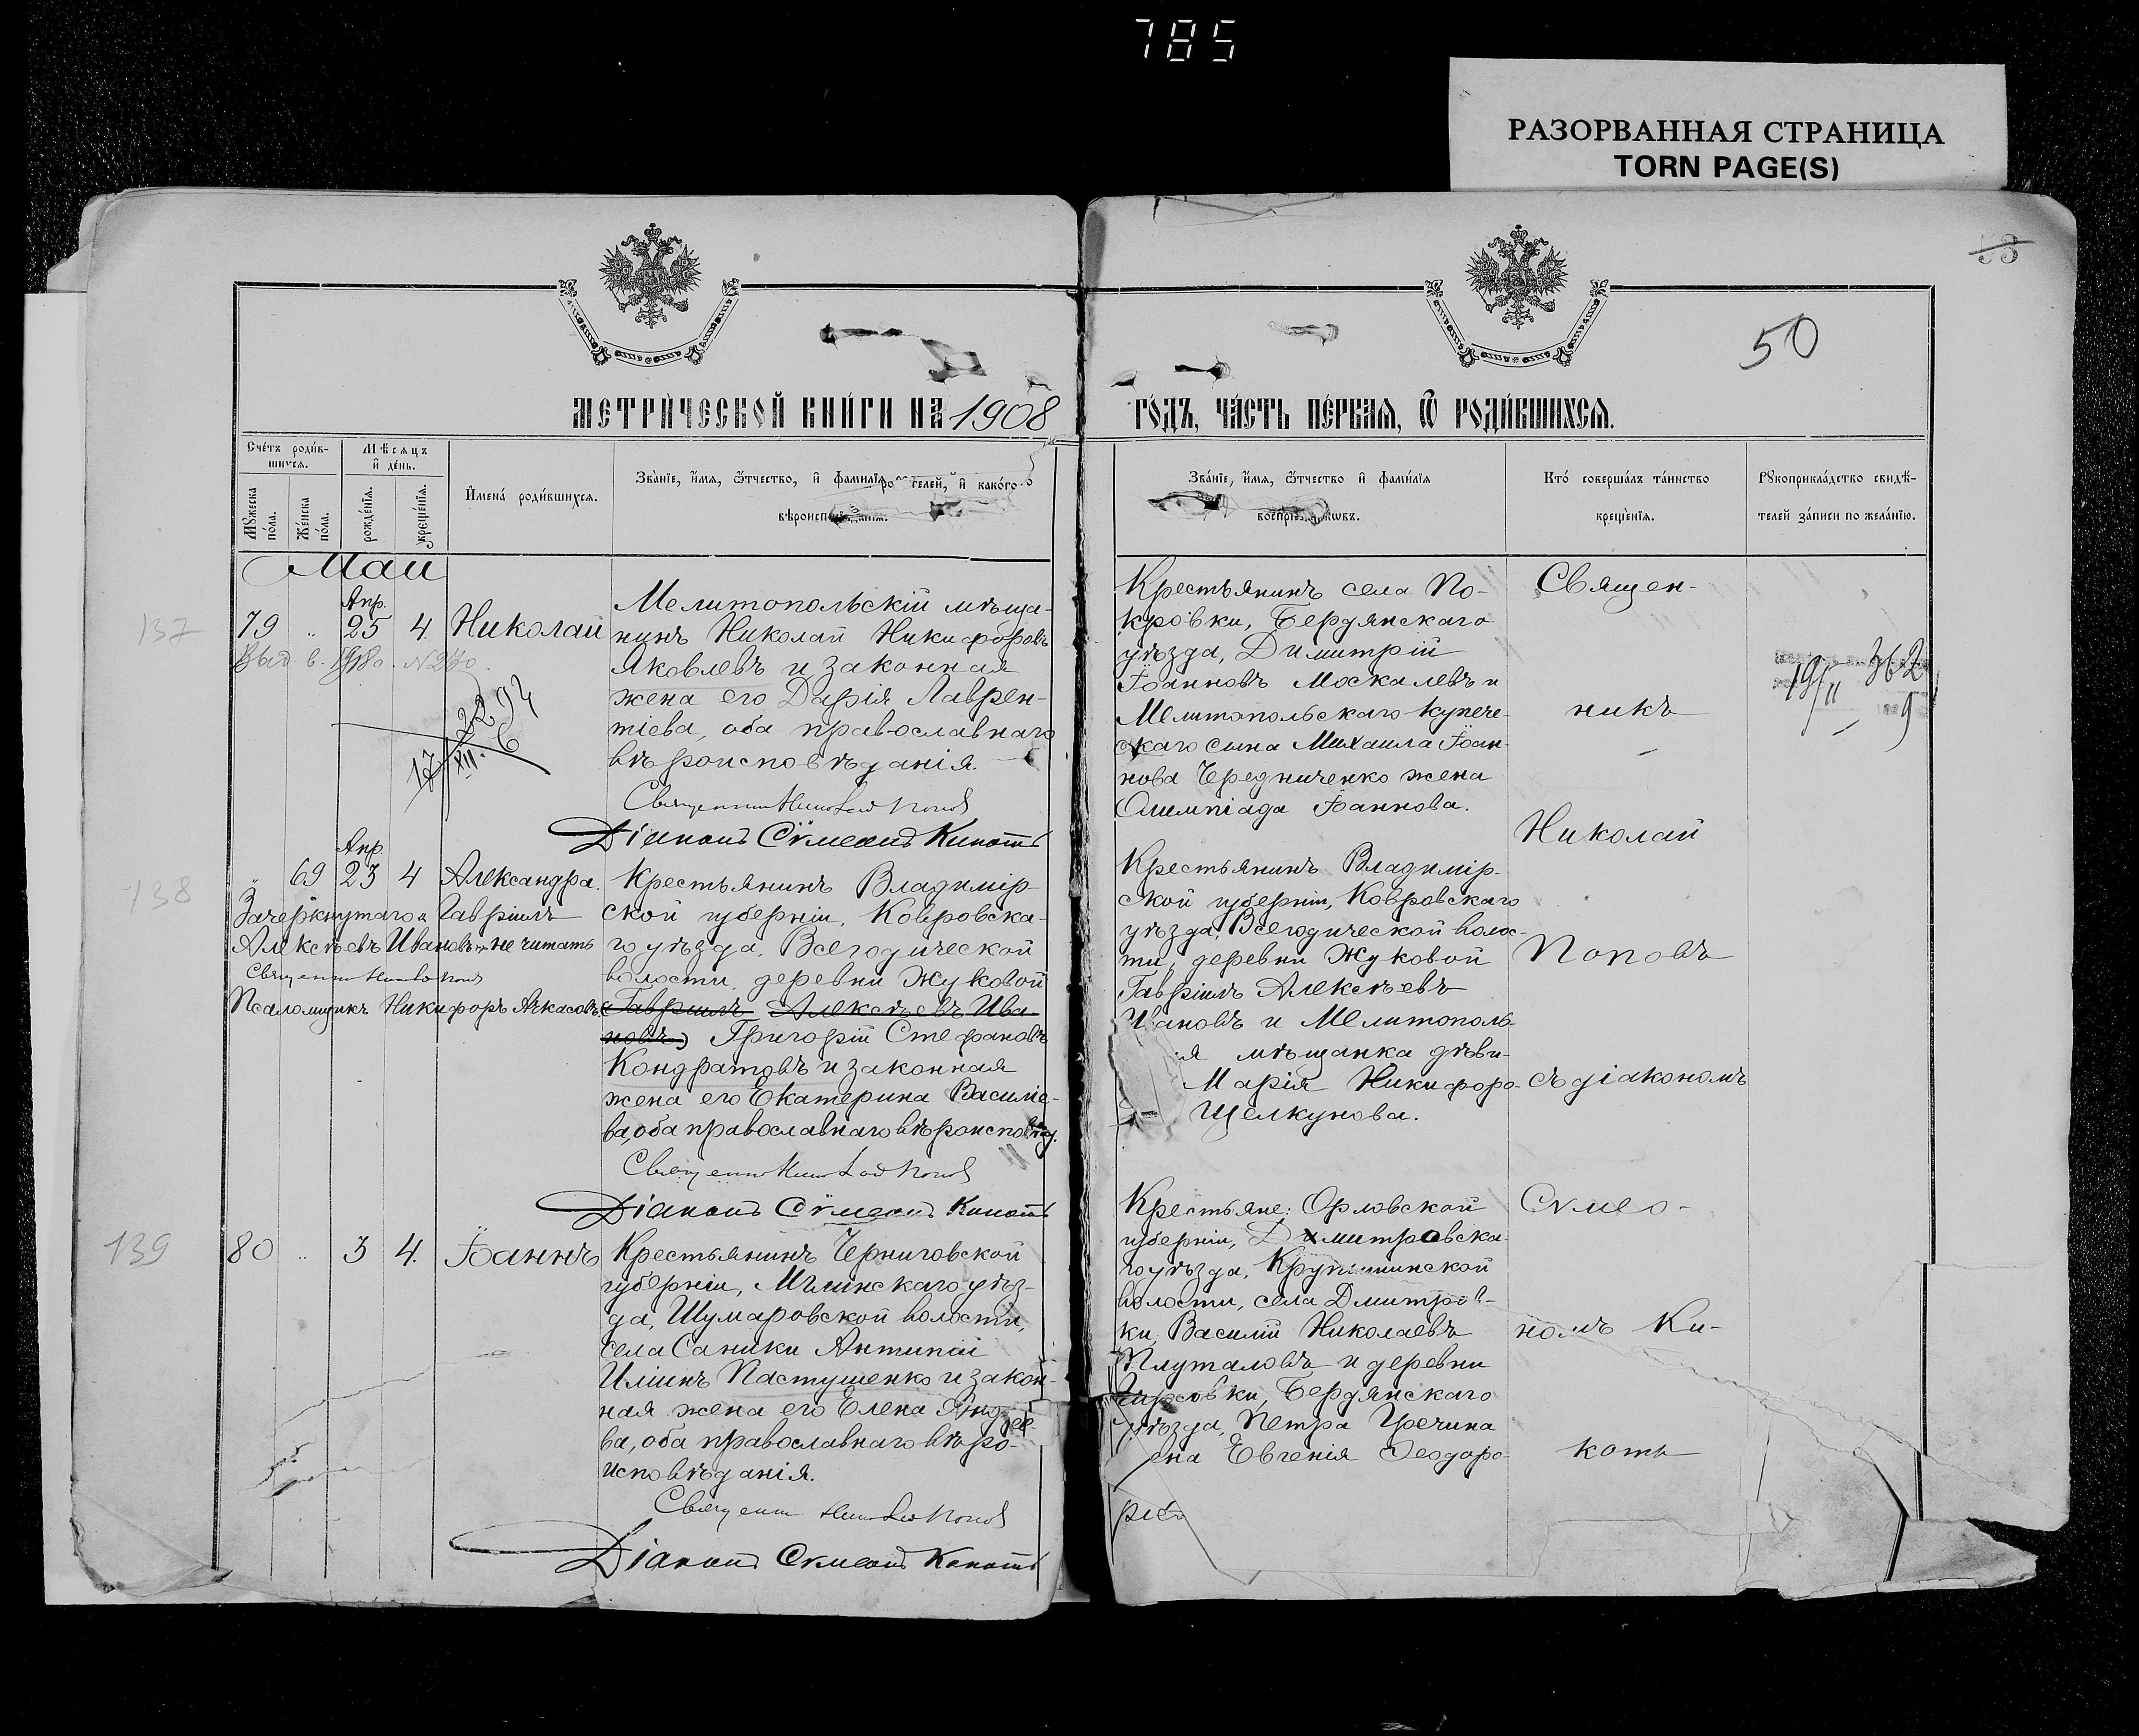 785
РАЗОРВАННАЯ СТРАНИЦА
TORN PAGE(S)
53
50
МЕТРИ́ЧЕСКОЙ КНИ́ГИ НА 1908
ГО́ДЪ, ЧА́СТЬ ПЕ́РВАЯ, Ѿ РОДИ́ВШИХСЯ.
Сче́тъ роди́в-
шихся.
Мѣ́сяцъ
и҆ де́нь.
Мꙋжеска
по́ла.
Же́нска
по́ла.
рожде́нїѧ.
креще́нїѧ.
И҆мена̀ роди́вшихсѧ.
Зва́нїе, и҆́мѧ, ѻ҆́тчество, и҆ фами́лїѧ родителей, и҆ како́гѡ
вѣроисповѣданїѧ.
Зва́нїе, и҆́мѧ, ѻ҆́тчество и҆ фами́лїѧ
воспрїемниковъ.
Кто́ соверша́лъ та́инство
креще́нїѧ.
Рꙋкоприкла́дство свидѣ́-
телей за́писи по жела́нїю.
Май
137
Апр.
79 " 25 4. Николай
Выд. в. 1918 №270.
2294
17 XII. 6
Мелитопольскій мѣща-
нинъ Николай Никифоровъ
Яковлевъ и законная
жена его Дарія Лаврен-
тіева, оба православнаго
вѣроисповѣданія.
Священникъ Николай Поповъ
Діаконъ Сѵмеонъ Кикоть
Крестьянинъ села По-
кровки, Бердянскаго
уѣзда, Димитрій
Іоанновъ Москалевъ и
Мелитопольскаго купече-
скаго сына Михаила Іоан-
нова Чередниченко жена
Олимпіада Іоаннова.
Священ-
никъ
Николай
Поповъ
съ діакономъ
Сѵмео-
номъ Ки-
коть
362
19 II 9
138
Апр.
" 69 23 4 Александра.
Зачеркнутаго „Гавріилъ
Алексѣевъ Ивановъ“ не читать
Священникъ Николай Поповъ
Псаломщикъ Никифоръ Ачкасовъ
Крестьянинъ Владимір-
ской губерніи, Ковровска-
го уѣзда, Всегодической
волости, деревни Жуковой
(Гавріилъ Алексѣевъ Ива-
новъ) Григорій Стефановъ
Кондратовъ и законная
жена его Екатерина Василіе-
ва, оба православнаго вѣроисповѣд.
Священникъ Николай Поповъ
Діаконъ Сѵмеонъ Кикоть
Крестьянинъ Владимір-
ской губерніи, Ковровскаго
уѣзда, Всегодической волос-
ти, деревни Жуковой
Гавріилъ Алексѣевъ
Ивановъ и Мелитополь-
я мѣщанка дѣви-
Марія Никифоро-
Щелкунова.
139
80 " 3 4. Іоаннъ
Крестьянинъ Черниговской
губерніи, Мглинскаго уѣз-
да, Шумаровской волости,
села Саники Антипій
Иліинъ Пастушенко и закон-
ная жена его Елена Андрее-
ва, оба православнаго вѣро-
исповѣданія.
Священникъ Николай Поповъ
Діаконъ Сѵмеонъ Кикоть
Крестьяне: Орловской
губерніи, Дмитровска-
го уѣзда,
волости, села Дмитров-
ки, Василій Николаевъ
Плуталовъ и деревни
Бердянскаго
уѣзда, Петра Гречина
ена Евгенія Ѳеодоро-